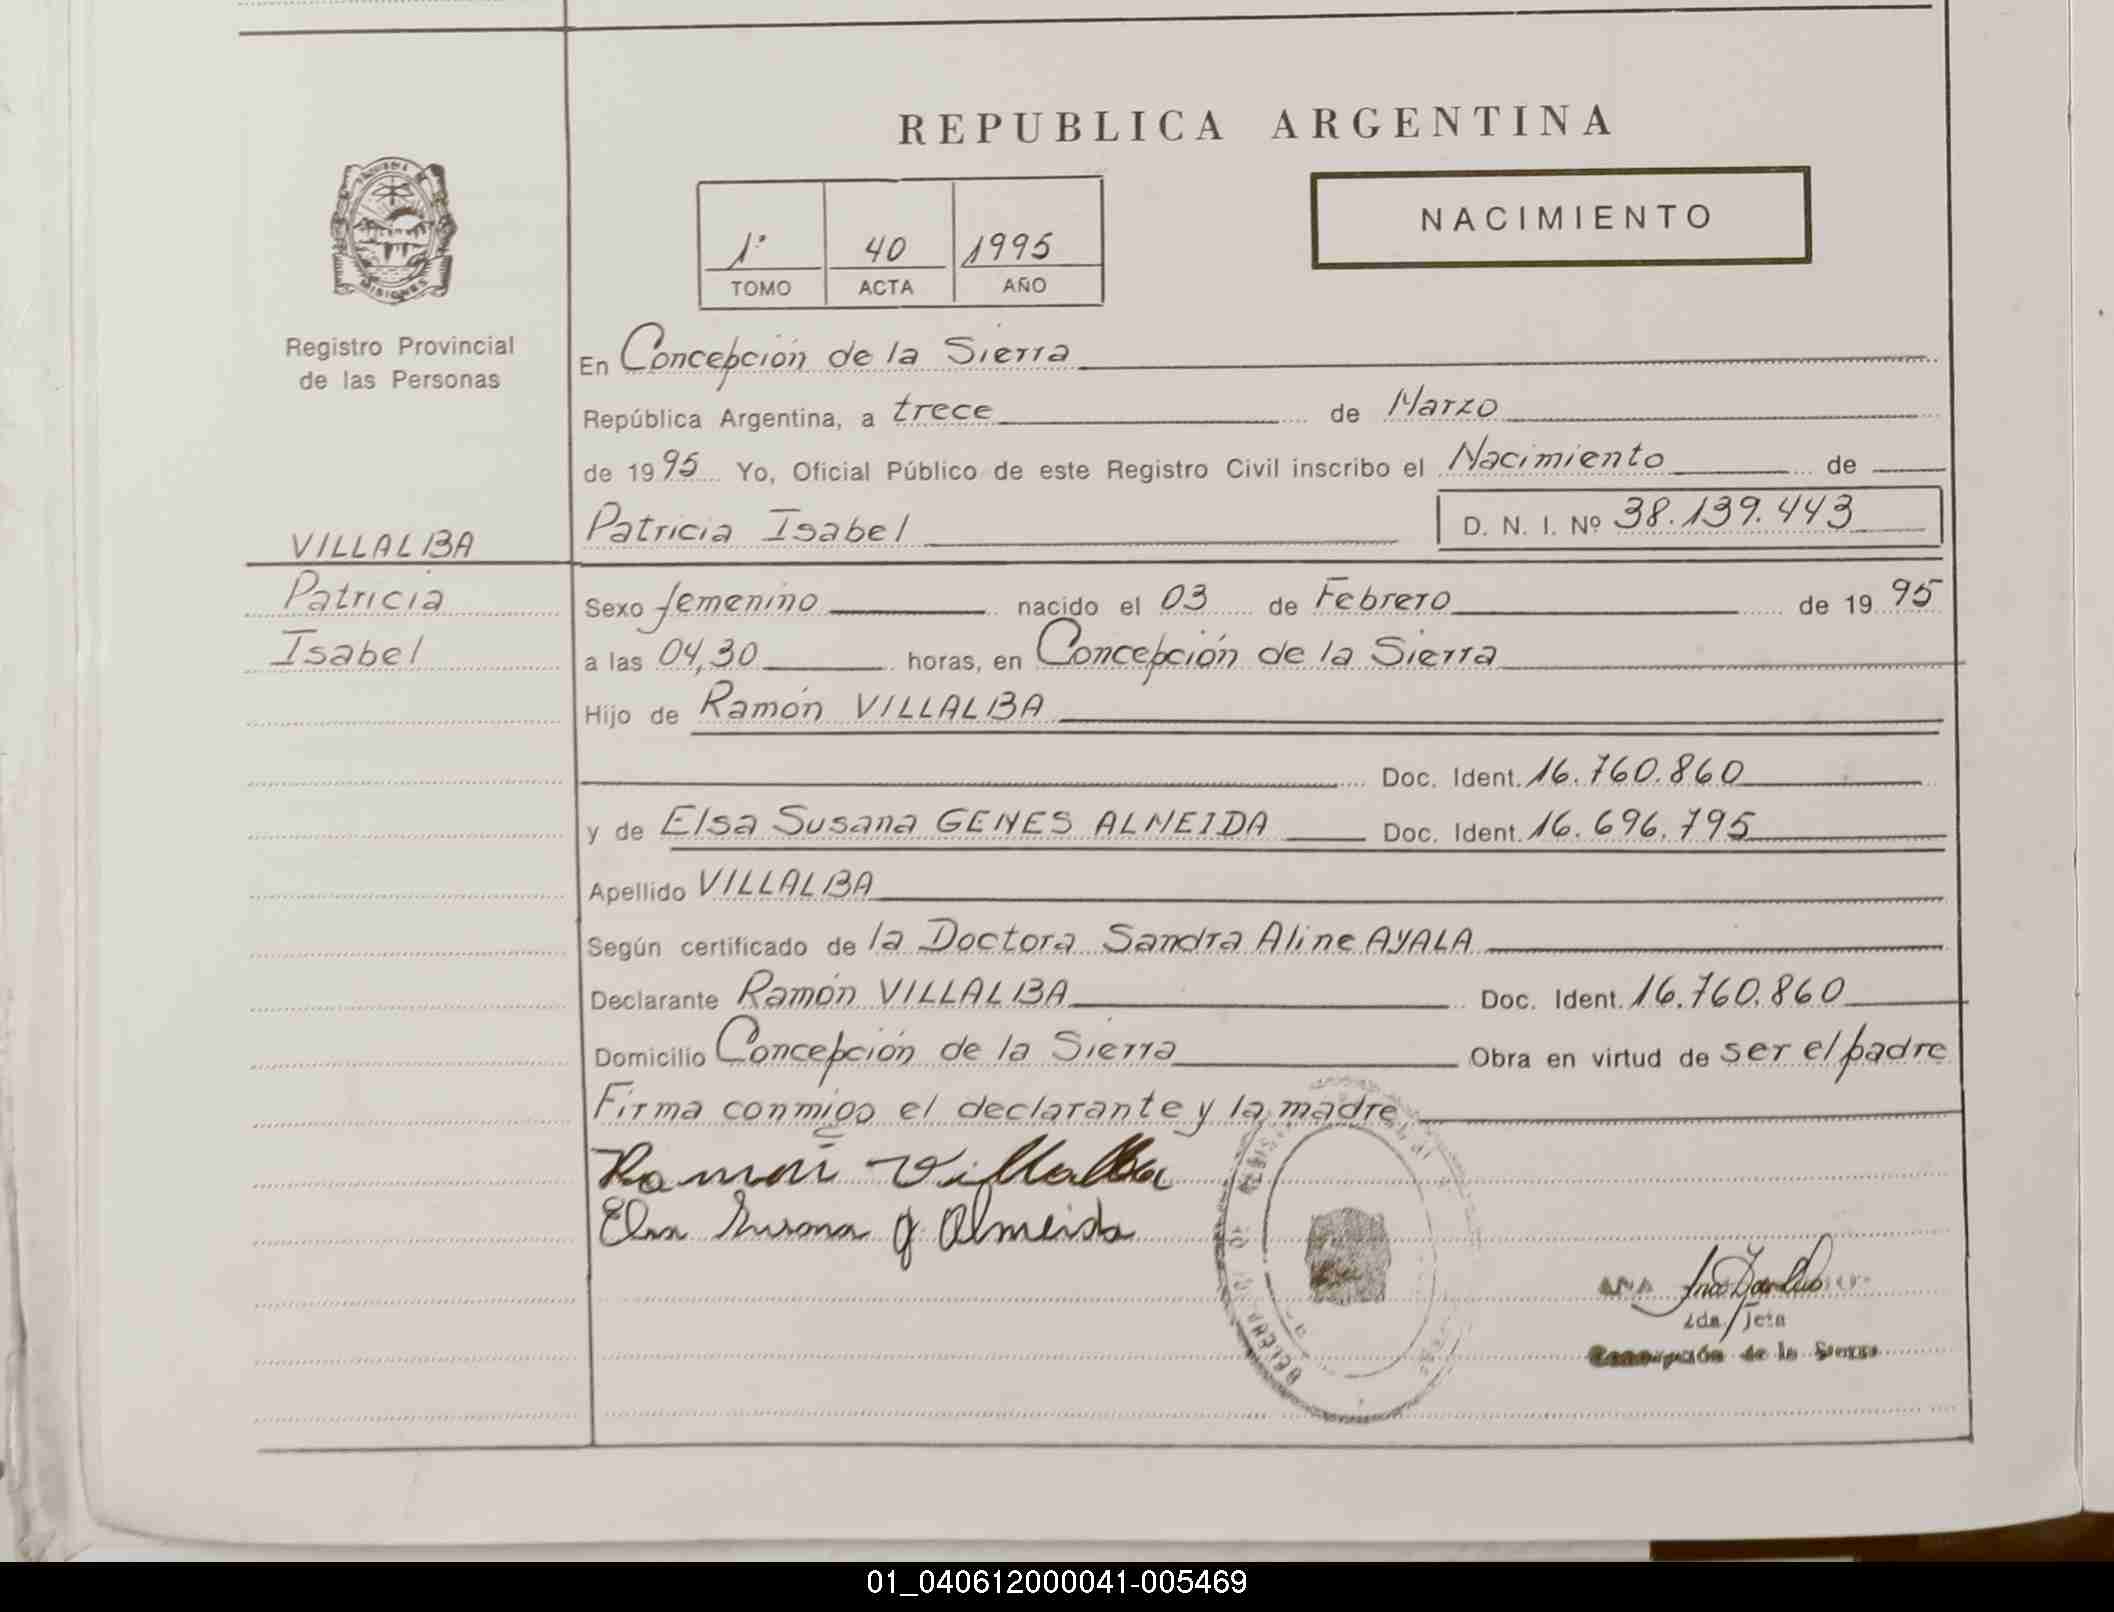 REPUBLICA ARGENTINA
NACIMIENTO
1º 40 1995
TOMO ACTA AÑO
MISIONES
Registro Provincial
de las Personas
En Concepción de la Sierra
República Argentina, a trece de Marzo
de 1995 Yo, Oficial Público de este Registro Civil inscribo el Nacimiento de
Patricia Isabel D. N. I. Nº 38.139.443
VILLALBA
Patricia
Isabel
Sexo femenino nacido el 03 de Febrero de 1995
a las 04,30 horas, en Concepción de la Sierra
Hijo de Ramón VILLALBA
Doc. Ident. 16.760.860
y de Elsa Susana GENES ALMEIDA Doc. Ident. 16.696.795
Apellido VILLALBA
Según certificado de la Doctora Sandra Aline AYALA
Declarante Ramón VILLALBA Doc. Ident. 16.760.860
Domicilio Concepción de la Sierra Obra en virtud de ser el padre
Firma conmigo el declarante y la madre
Ramón Villalba
Elsa Susana G Almeida
ANA
2da Jefa
Concepción de la Sierra
01_040612000041-005469